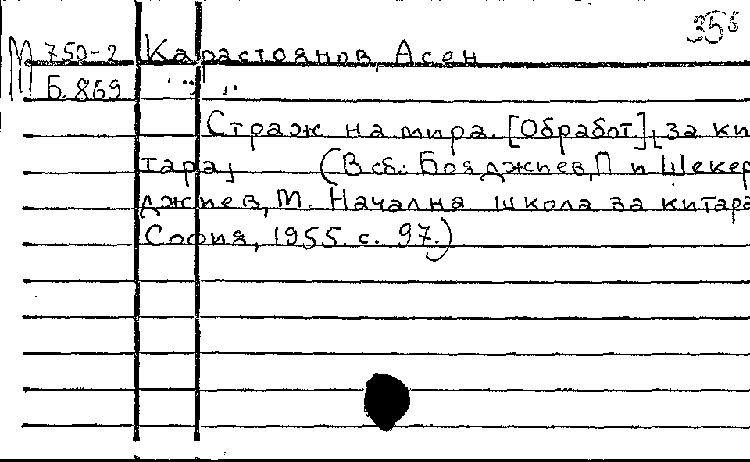 35⁵
М 750-2 Карастоянов, Асен
Б.869 " "
Страж на мира. [Обработ], за ки
тара, (В сб.: Бояджиев, П и Шекер
джиев, М. Начална школа за китара
София, 1955. с. 97.)